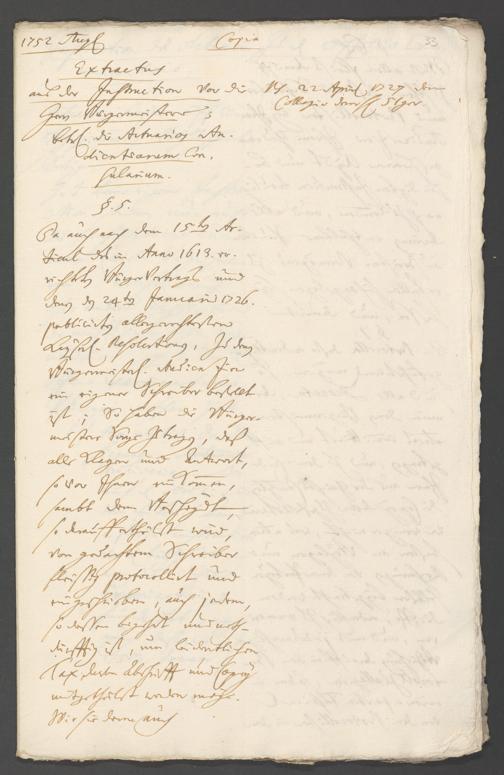 1752 Copia 33
Extractus
aus der Instruction vor die
Herrn Bürgermeistere;
die Actuarios Au-
dientiarum Con-
sularium.
22. April 1727 dem
Collegio
§. 5.
Da auch nach dem 15ten Ar-
ticul des in Anno 1613. er-
richteten Bürger Vertrags und
den 24ten Januarii 1726.
publicirten allergerechtesten
Kayserl. Resolution, zu den
Bürgermeisterl. Audientien
ein eigener Schreiber bestellt
ist; So haben die Bürger-
meistere Sorge zu tragen, daß
alle Klagen und Antwort,
so vor Ihnen einkommen,
sambt dem Bescheydt,
so darauff ertheilet wird,
von gedachtem Schreiber
fleissig protocollirt und
eingeschrieben, auch jedem,
so dessen begehrt und noth-
dürfftig ist, umb leidentlichen
Tax, davon Abschrifft und Copey
mitgetheilt werden möge.
Wie sie dann auch